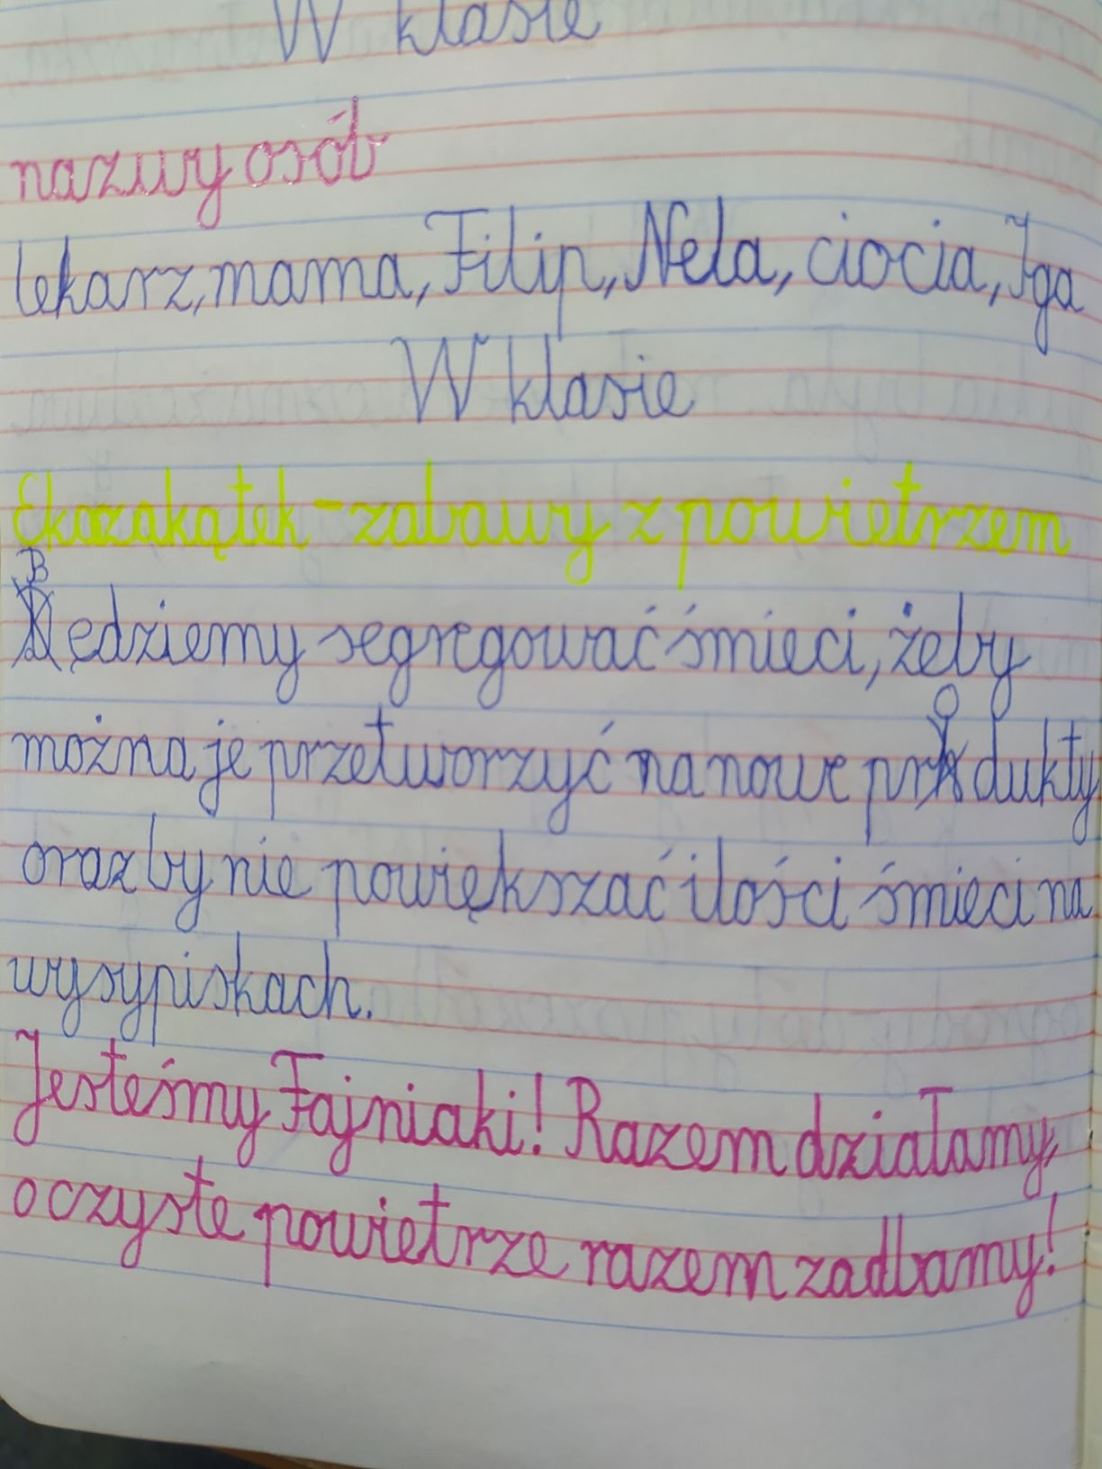 W klasie
nazwy osób
lekarz, mama, Filip, Nela, ciocia, Iga
W klasie
Ekozakątek - zabawy z powietrzem
Będziemy segregować śmieci, żeby
można je przetworzyć na nowe produkty
oraz by nie powiększać ilości śmieci na
wysypiskach.
Jesteśmy Fajniaki! Razem działamy,
o czyste powietrze razem zadbamy!